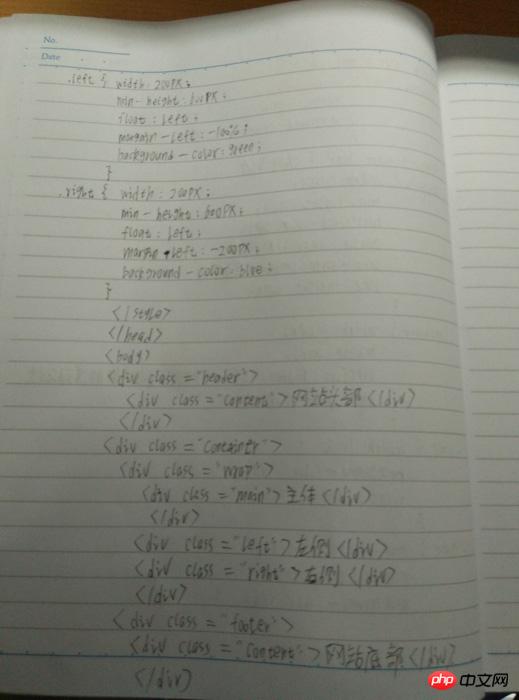 No.
Date
.left { width: 200PX;
min-height: 600PX;
float: left;
margain-left: -100%;
background-color: green;
}
.right { width: 200PX;
min-height: 600PX;
float: left;
margin-left: -200PX;
background-color: blue;
}
</style>
</head>
<body>
<div class="header">
<div class="content">网站头部</div>
</div>
<div class="container">
<div class="wrap">
<div class="main">主体</div>
</div>
<div class="left">左侧</div>
<div class="right">右侧</div>
</div>
<div class="footer">
<div class="content">网站底部</div>
</div>
php中文网